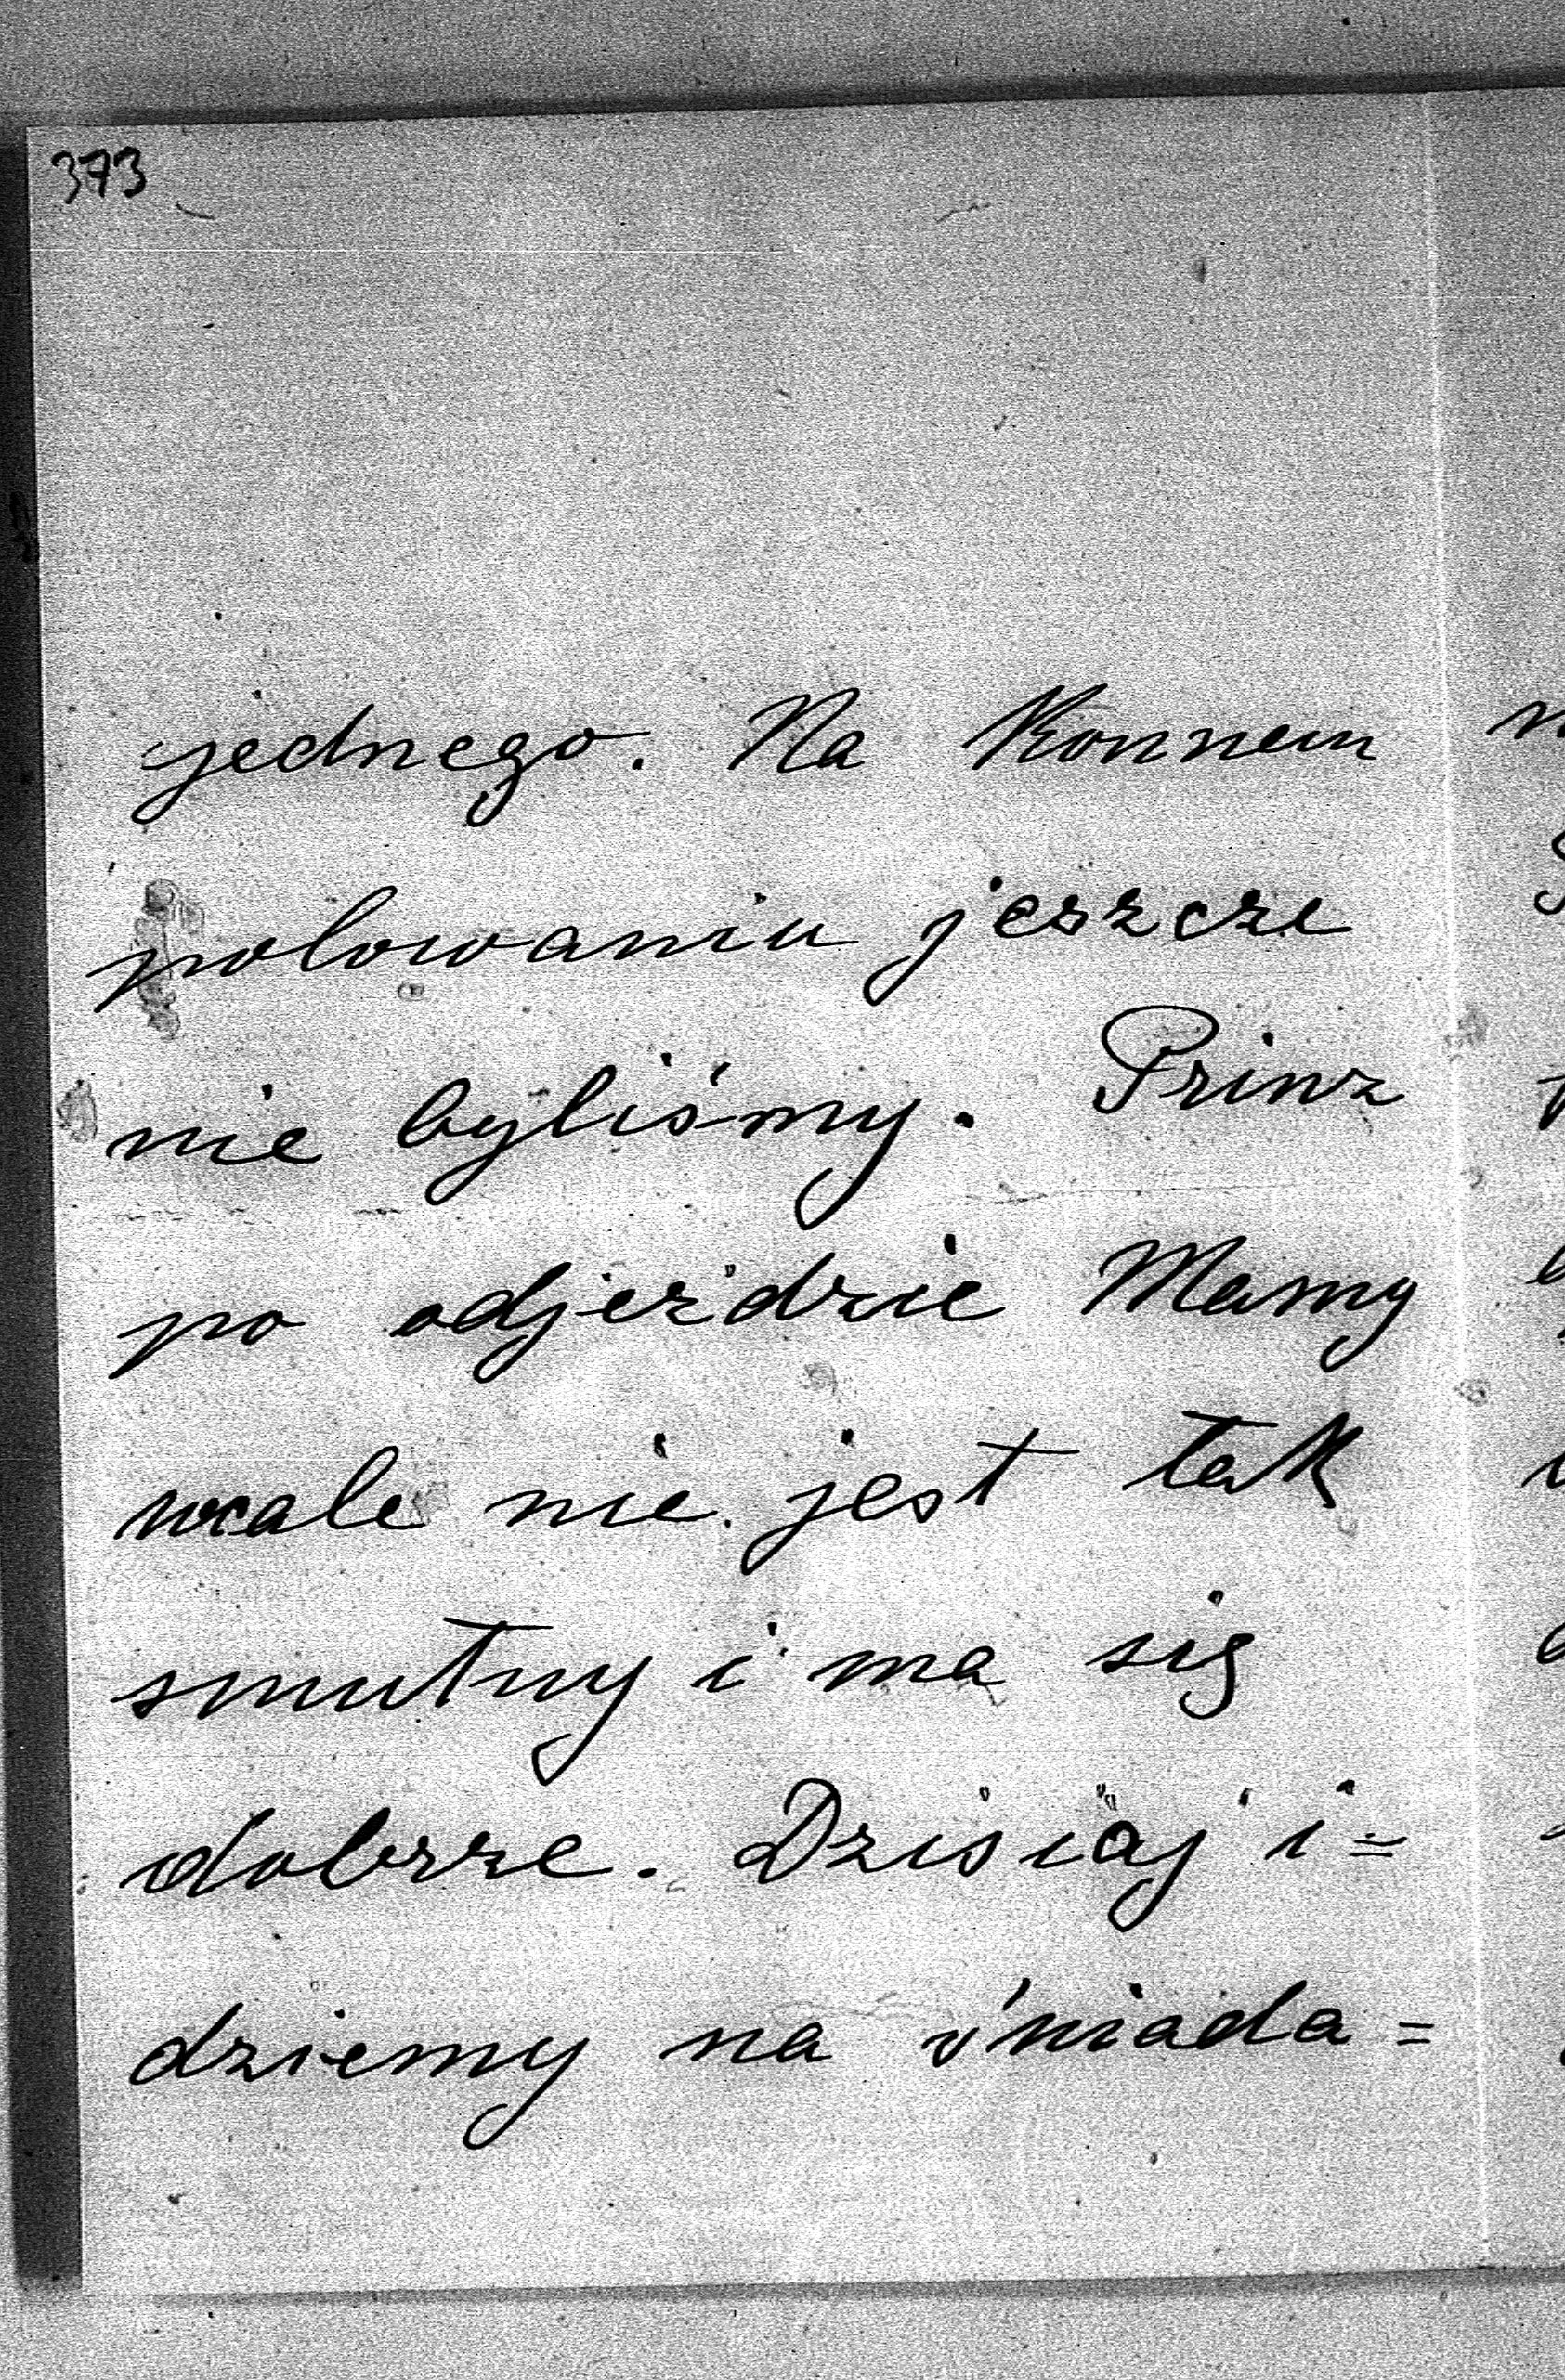 373
jednego. Na Konnem
polowaniu jeszcze
nie byliśmy. Prinz
po odjeździe Mamy
wcale nie jest tak
smutny i ma się
dobrze. Dzisiaj i=
dziemy na śniada=